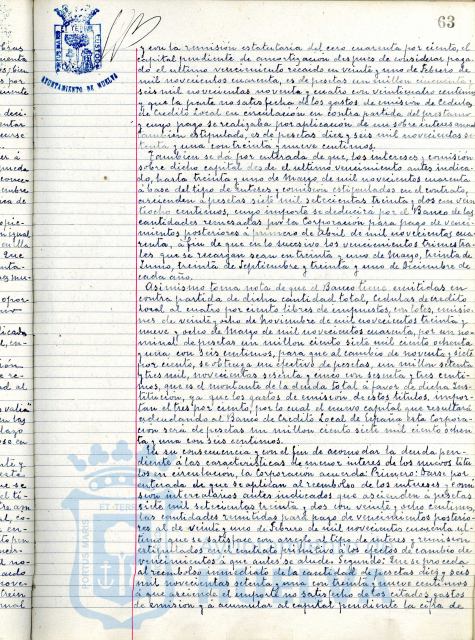 63
AYUNTAMIENTO DE HUELVA
y con la remisión estatutaria del cero cuarenta por ciento, el
capital pendiente de amortización despues de considerar paga-
do el ultimo vencimiento recaido en veinte y uno de febrero de
mil novecientos cuarenta, es de pesetas un millon cincuenta y
seis mil novecientos noventa y cuatro con veinticuatro centimos
y que la parte no satisfecha de los gastos de emisión de Cedulas
de Credito Local en circulacion en contrapartida del prestamo
cuyo pago se realizaba por aplicacion de un sobre interes anual
tambien estipulado, es de pesetas diez y seis mil novecientas se-
tenta y una con treinta y nueve centimos.
Tambien se dá por enterada de que, los intereses y comision
sobre dicho capital desde el ultimo vencimiento antes indica-
do, hasta treinta y uno de Marzo de mil novecientos cuarenta
á base del tipo de interes y comisión estipulados en el contrato,
ascienden á pesetas siete mil setecientas treinta y dos con vein-
tiocho centimos, cuyo importe se deducirá por el Banco de las
cantidades reservadas por la Corporación para pago de venci-
mientos posteriores á primero de Abril de mil novecientos cua-
renta, á fin de que en lo sucesivo los vencimientos trimestra-
les que se recargan sean en treinta y uno de Marzo, treinta de
Junio, treinta de Septiembre y treinta y uno de Diciembre de
cada año.
Asimismo toma nota de que el Banco tiene emitidas en
contra partida de dicha cantidad total, Cedulas de Credito
Local al cuatro por ciento libres de impuestos, con lotes, emisio-
nes de veinte y ocho de Noviembre de mil novecientos treinta y
nueve y ocho de Marzo de mil novecientos cuarenta, por un no-
minal de pesetas un millon ciento siete mil ciento ochenta
y una con seis centimos, para que al cambio de noventa y siete
por ciento, se obtenga un efectivo de pesetas, un millon setenta
y tres mil, novecientas sesenta y cinco con sesenta y tres centi-
mos, que es el montante de la deuda total á favor de dicha Ins-
titución, ya que los gastos de emisión de estos titulos, impor-
tan el tres por ciento, por lo cual el nuevo capital que resultará
adeudando al Banco de Credito Local de España esta Corpora-
cion será de pesetas un millon ciento siete mil ciento ochen-
ta y una con seis centimos.
En su consecuencia y con el fin de acomodar la deuda pen-
diente á las caracteristicas de menor interes de los nuevos titu-
los en circulacion, la Corporacion acuerda: Primero: Darse por
enterada de que se aplican al reembolso de los intereses y comi-
sion intercalarios antes indicados que ascienden á pesetas
siete mil setecientas treinta y dos con veinte y ocho centimos,
las cantidades remitidas para pago de vencimientos posterio-
res al de veinte y uno de febrero de mil novecientos cuarenta ul-
timo que se satisface con arreglo al tipo de interes y remisión
estipulados en el contrato primitivo á los efectos de cambio de
vencimientos á que antes se alude. Segundo: Que se proceda
al reembolso inmediato de la cantidad de pesetas diez y seis
mil novecientas setenta y una con treinta y nueve centimos
á que asciende el importe no satisfecho de los citados gastos
de emisión y á acumular al capital pendiente la cifra de